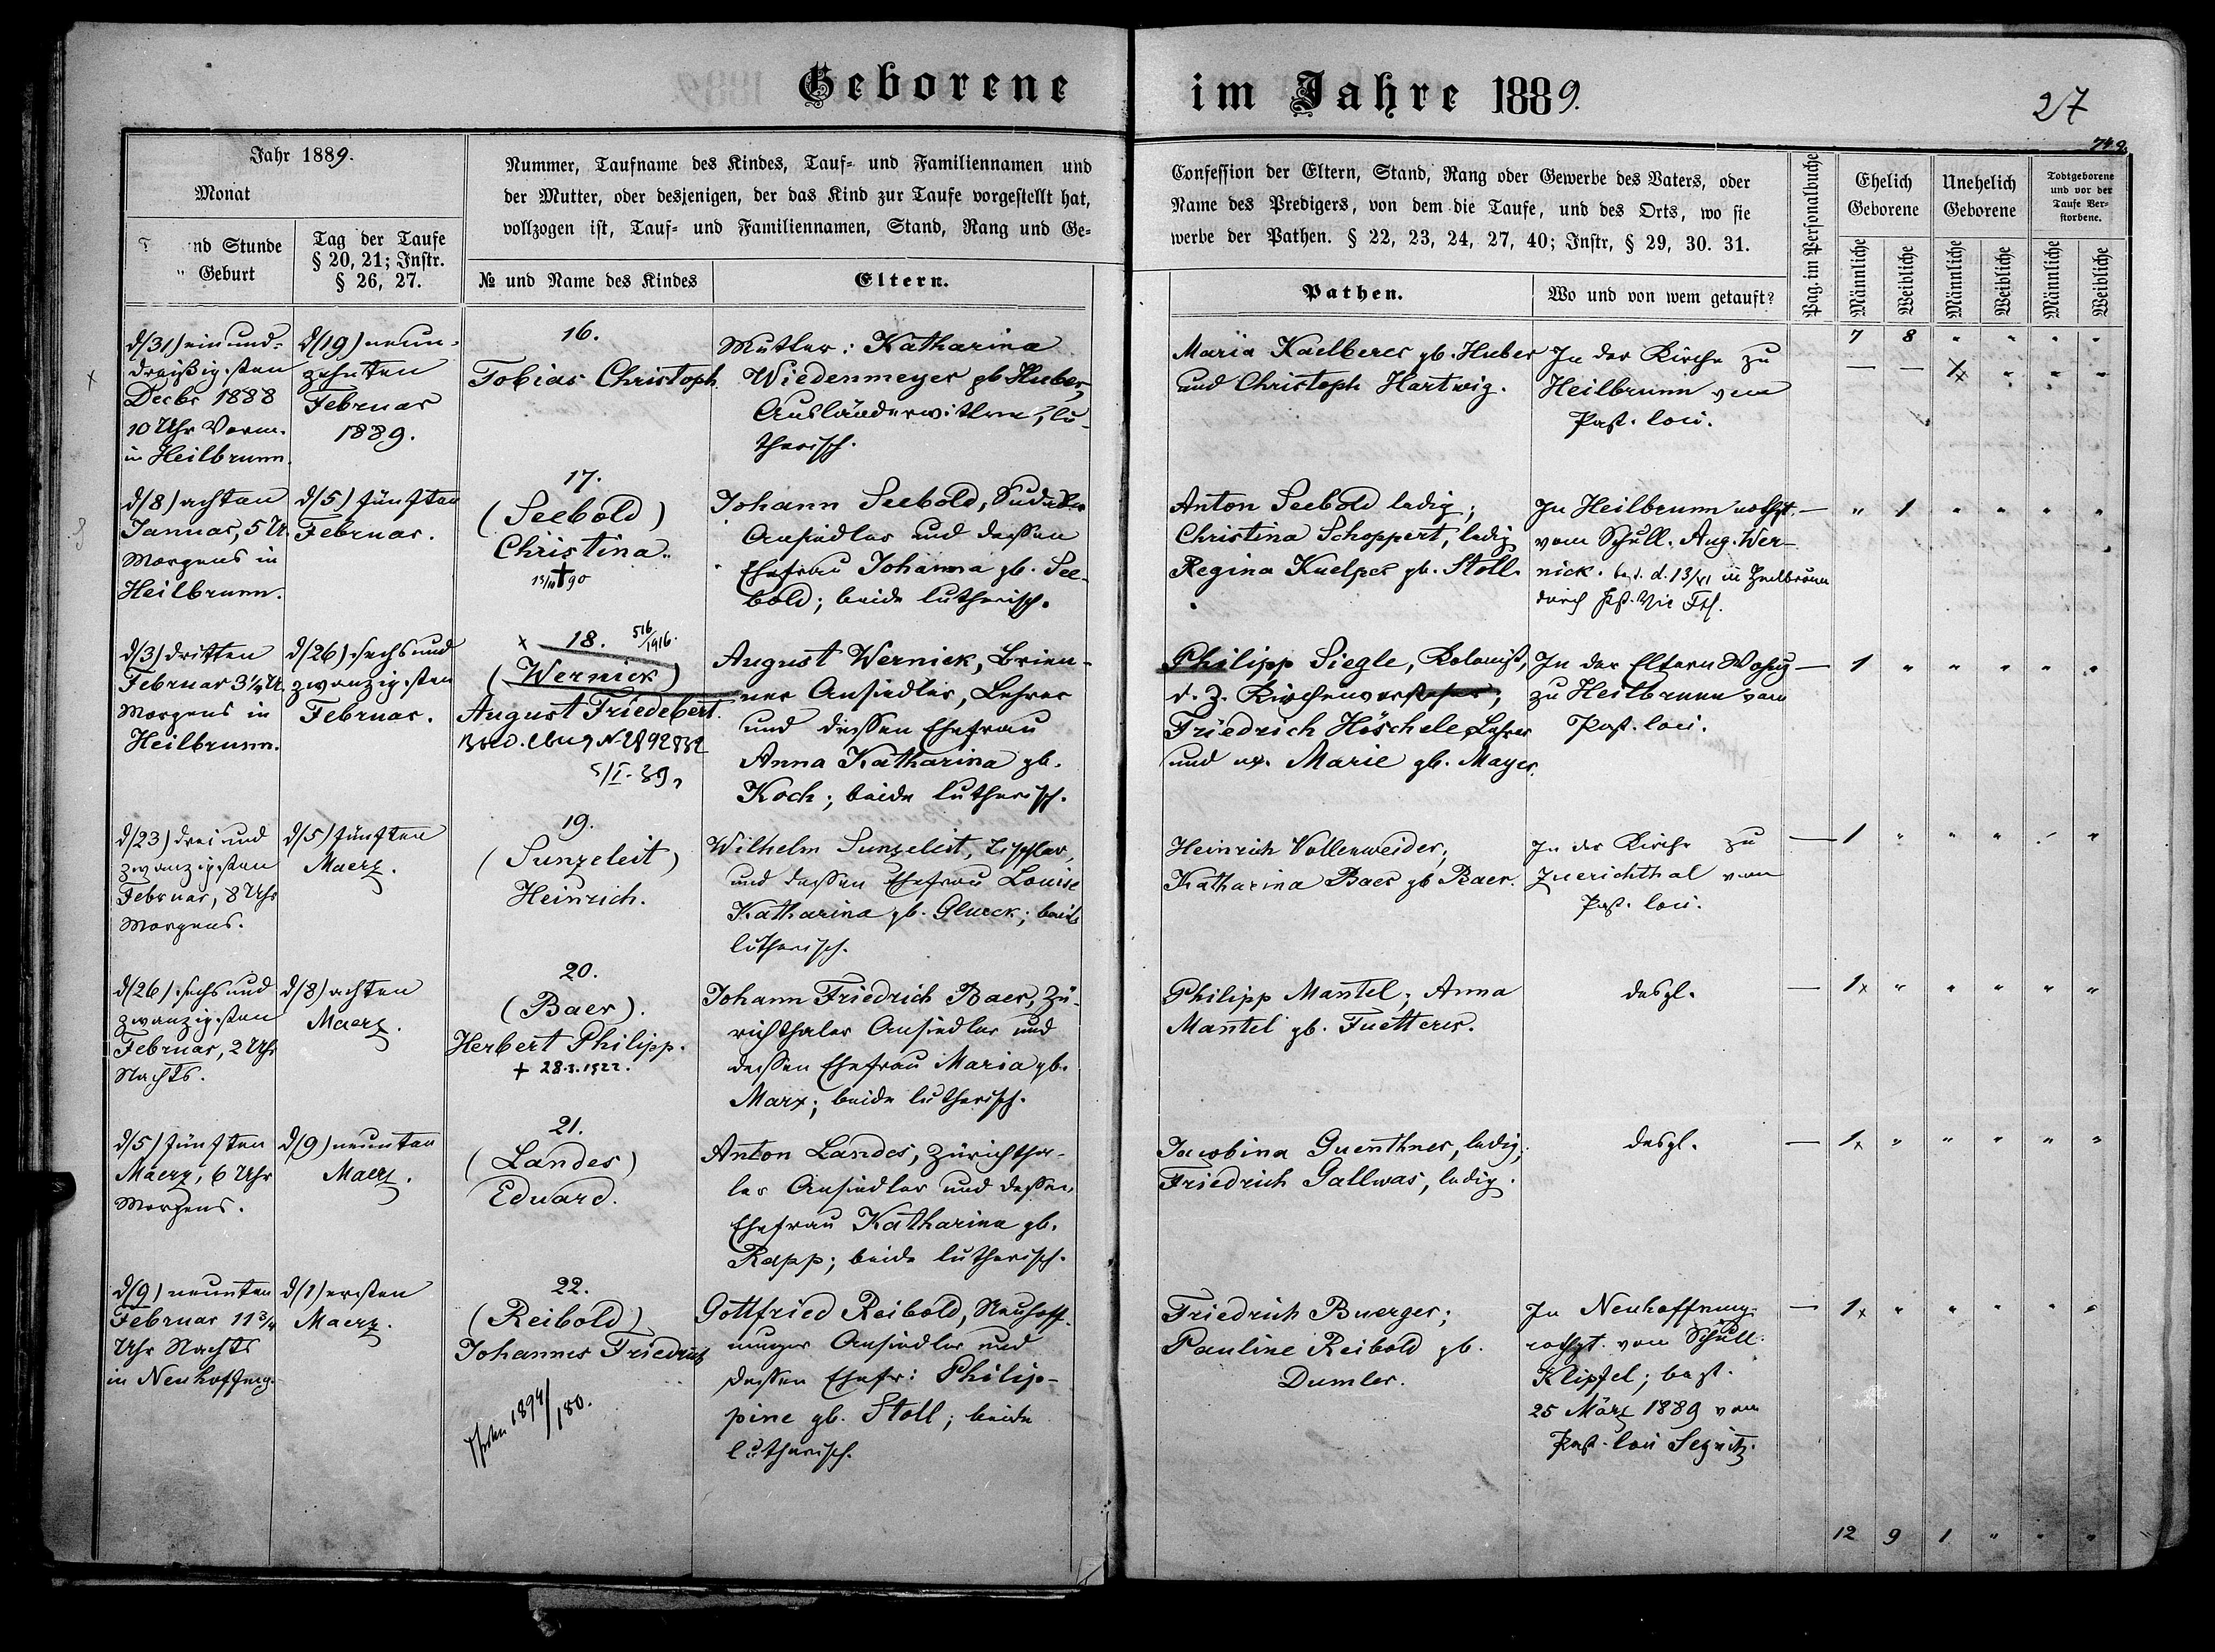 Geborene im Jahre 1889.
27
749.
Jahr 1889.
Monat
nd Stunde
" Geburt
Tag der Taufe
§ 20, 21; Instr.
§ 26, 27.
Nummer, Taufname des Kindes, Tauf- und Familiennamen und
der Mutter, oder desjenigen, der das Kind zur Taufe vorgestellt hat,
vollzogen ist, Tauf- und Familiennamen, Stand, Rang und Ge-
№ und Name des Kindes
Eltern.
Confession der Eltern, Stand, Rang oder Gewerbe des Vaters, oder
Name des Predigers, von dem die Taufe, und des Orts, wo sie
werbe der Pathen. § 22, 23, 24, 27, 40; Instr, § 29, 30. 31.
Pathen.
Wo und von wem getauft?
Pag. im Personalbuche
Ehelich
Geborene
Unehelich
Geborene
Todtgeborene
und vor der
Taufe Ver-
storbene.
Männliche
Weibliche
Männliche
Weibliche
Männliche
Weibliche
7 8 " " " "
d/31) ein und-
dreißigsten
Decbr 1888
10 Uhr Vorm.
in Heilbrunn.
d/19) neun-
zehnten
Februar
1889.
16.
Tobias Christoph
Mutter: Katharina
Wiedenmeyer gb Huber,
Ausländerwittwe, lu-
therisch.
Maria Kaelberer gb. Huber
und Christoph Hartwig.
In der Kirche zu
Heilbrunn vom
Past. loci.
— — 1x " " "
d/8) achten
Januar, 5 U.
Morgens in
Heilbrunn.
d/5) fünften
Februar.
17.
(Seebold)
Christina.
† 90
Johann Seebold, Sudaker
Ansiedler und dessen
Ehefrau Johanna gb. See-
bold; beide lutherisch.
Anton Seebold ledig;
Christina Schoppert, ledig
Regina Kuelper gb. Stoll.
In Heilbrunn nothgt.
vom Schull. Aug. Wer-
nick. best. d. 13/VI in Heilbrunn
durch Pst. Vic
— " 1 " " " "
d/3) dritten
Februar 3¼ U.
Morgens in
Heilbrunn.
d/26) sechs und
zwanzigsten
Februar.
x 18. 516/1916.
(Wernick)
August Friedebert.
5/I-39
August Wernick, Brien-
ner Ansiedler, Lehrer
und dessen Ehefrau
Anna Katharina gb.
Koch; beide lutherisch.
Philipp Siegle, Kolonist,
d. Z. Kirchenvorsteher;
Friedrich Höschele, Lehrer
und ux. Marie gb. Mayer.
In der Eltern Wohng
zu Heilbrunn vom
Past. loci.
— 1 " " " " "
d/23) drei und
zwanzigsten
Februar, 8 Uhr
Morgens.
d/5) fünften
Maerz.
19.
(Sunzeleit)
Heinrich.
Wilhelm Sunzeleit, Tischler,
und dessen Ehefrau Louise
Katharina gb. Glueck; beide
lutherisch.
Heinrich Vollenweider;
Katharina Baer gb Baer.
In der Kirche zu
Zuerichthal vom
Past. loci.
— 1 " " " " "
d/26) sechs und
zwanzigsten
Februar, 2 Uhr
Nachts.
d/8) achten
Maerz.
20.
(Baer).
Herbert Philipp.
† 28.3.1922.
Johann Friedrich Baer, Zü-
richthaler Ansiedler und
dessen Ehefrau Maria gb.
Marx; beide lutherisch.
Philipp Mantel; Anna
Mantel gb. Fuetterer.
desgl.
— 1x " " " " "
d/5) fünften
Maerz, 6 Uhr
Morgens.
d/9) neunten
Maerz.
21.
(Landes)
Eduard.
Anton Landes, Zürichtha-
ler Ansiedler und dessen
Ehefrau Katharina gb.
Rapp; beide lutherisch.
Jacobina Guenthner, ledig;
Friedrich Gallwas, ledig.
desgl.
— 1x " " " " "
d/9) neunten
Februar 11¾
Uhr Nachts
in Neuhoffnng.
d/1) ersten
Maerz.
22.
(Reibold)
Johannes Friedrich
1894/180.
Gottfried Reibold, Neuhoff-
nunger Ansiedler und
dessen Ehefr: Philip-
pine gb. Stoll; beide
lutherisch.
Friedrich Buerger;
Pauline Reibold gb.
Dumler.
In Neuhoffnung
nothgt. vom Schull.
Klipfel; best.
25 März 1889 vom
Past. loci Segnitz.
— 1x " " " " "
12 9 1 " " "